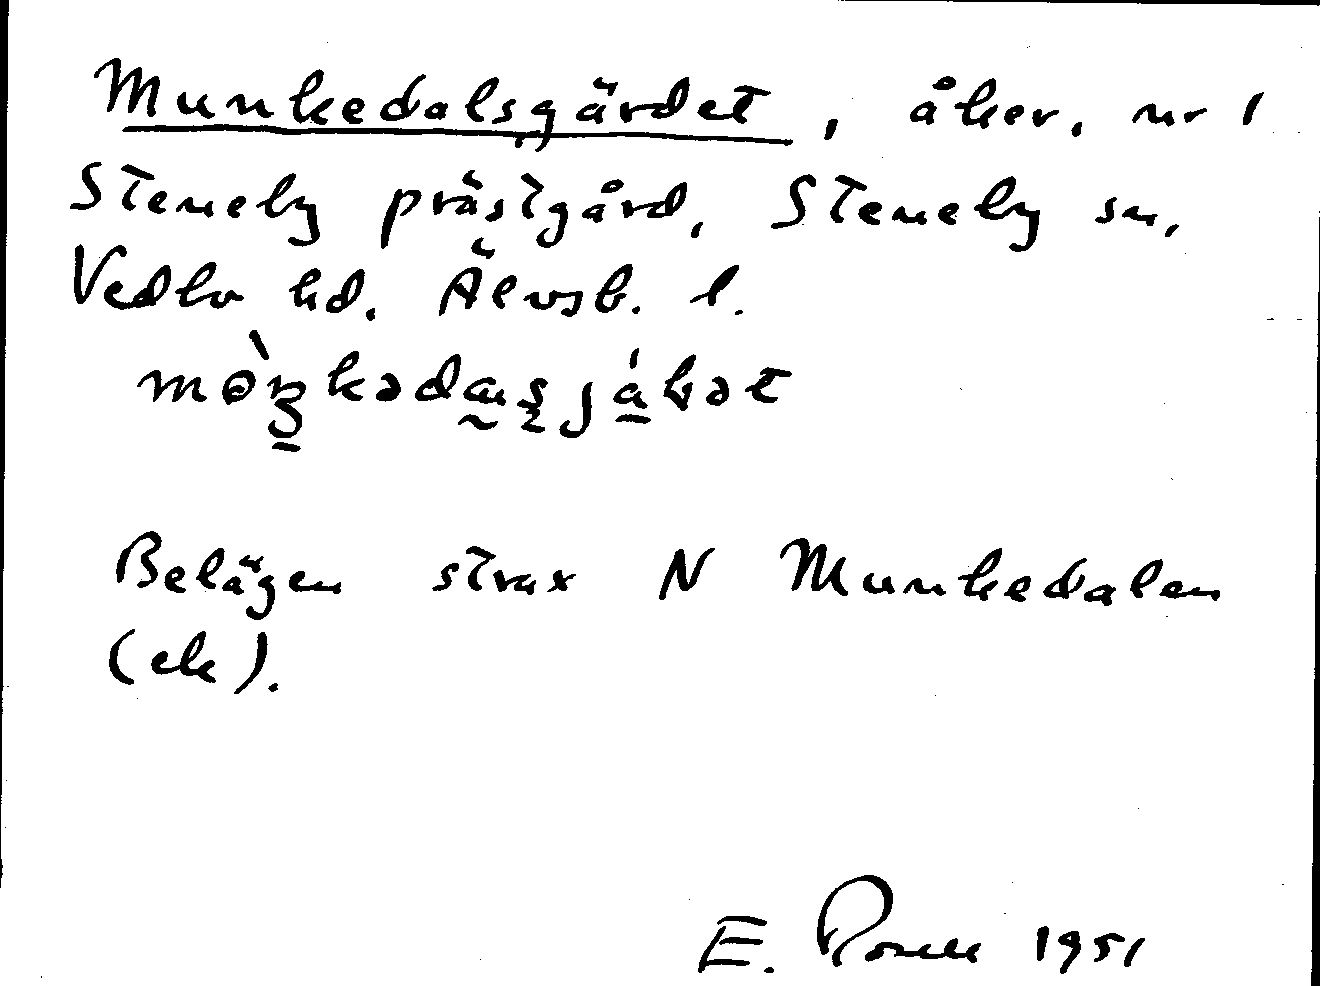 Munkedalsgärdet, åker, nr 1
Steneby prästgård, Steneby sn,
Vedbo hd. Älvsb. l.
Belägen strax N Munkedalen
(ek).
E. 1951